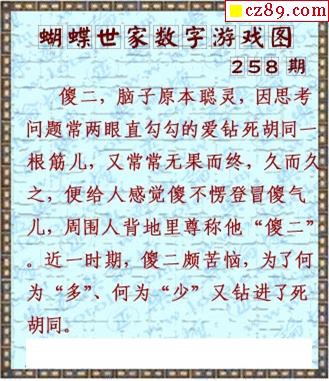 cz89.com
蝴蝶世家数字游戏图
258 期
傻二，脑子原本聪灵，因思考
问题常两眼直勾勾的爱钻死胡同一
根筋儿，又常常无果而终，久而久
之，便给人感觉傻不愣登冒傻气
儿，周围人背地里尊称他“傻二”
。近一时期，傻二颇苦恼，为了何
为“多”、何为“少”又钻进了死
胡同。